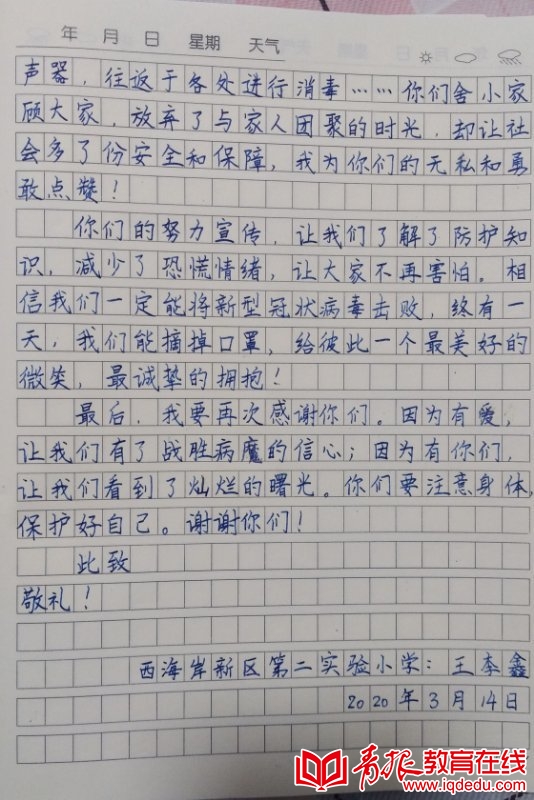 年 月 日 星期 天气
声器，往返于各处进行消毒……你们舍小家
顾大家，放弃了与家人团聚的时光，却让社
会多了份安全和保障，我为你们的无私和勇
敢点赞！
你们的努力宣传，让我们了解了防护知
识，减少了恐慌情绪，让大家不再害怕。相
信我们一定能将新型冠状病毒击败，终有一
天，我们能摘掉口罩，给彼此一个最美好的
微笑，最诚挚的拥抱！
最后，我要再次感谢你们。因为有爱，
让我们有了战胜病魔的信心；因为有你们，
让我们看到了灿烂的曙光。你们要注意身体，
保护好自己。谢谢你们！
此致
敬礼！
西海岸新区第二实验小学：王李鑫
2020年3月14日
青报教育在线
www.iqdedu.com